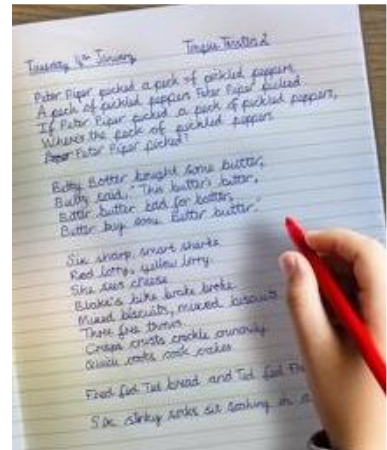 Tuesday 4th January Tongue Twisters 2
Peter Piper picked a peck of pickled peppers,
A peck of pickled peppers Peter Piper picked
If Peter Piper picked a peck of pickled peppers,
Where's the peck of pickled peppers
Peter Piper picked?
Betty Botter bought some butter,
Betty said, "This butter's bitter,
Bitter butter bad for batter,
Better buy some better butter."
Six sharp smart sharks
Red lorry, yellow lorry.
She sees cheese
Blake's bike brake broke.
Mixed biscuits, mixed biscuits
Three free throws.
Crisps crusts crackle crunchily.
Quick cooks cook cakes
Fred fed Ted bread and Ted fed
Six stinky socks sit soaking in a